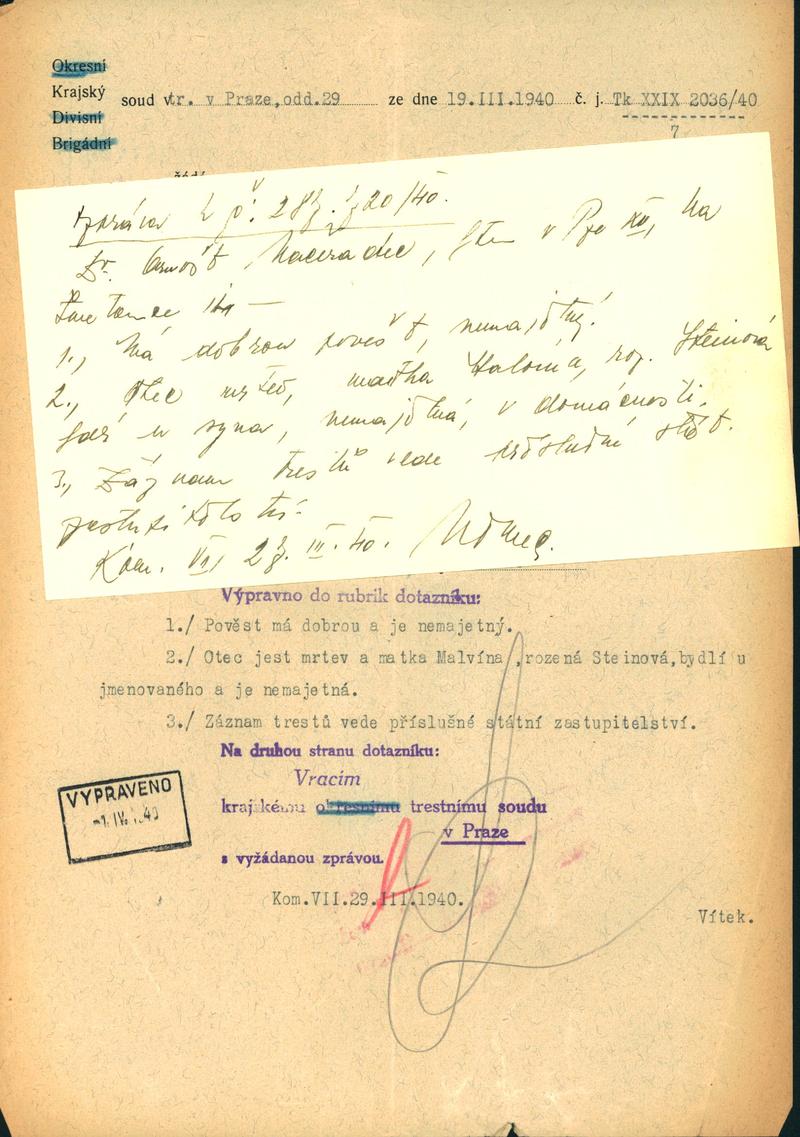 Okresní
Krajský
Divisní
Brigádní
soud v tr. v Praze, odd.29 ze dne 19.III.1940 č. j. Tk XXIX 2036/40
7
zpráva k č. j. 2820/40.
Dr. Arnošt Maceradec, v XII, Na
1., Má dobrou pověst, nemajetný.
2., Otec mrtev, matka roz. Steinová
u syna, nemajetná, v domácnosti.
3., Záznam trestů vede příslušné stát.
zastupitelství.
Kom. VII, III. 40. Němec.
Výpravno do rubrik dotazníku:
1./ Pověst má dobrou a je nemajetný.
2./ Otec jest mrtev a matka Malvína ,rozená Steinová,bydlí u
jmenovaného a je nemajetná.
3./ Záznam trestů vede příslušné státní zastupitelství.
Na druhou stranu dotazníku:
Vracím
krajskému okresnímu trestnímu soudu
v Praze
s vyžádanou zprávou.
VYPRAVENO
-1. IV. 1940
Kom.VII.29.III.1940.
Vítek.